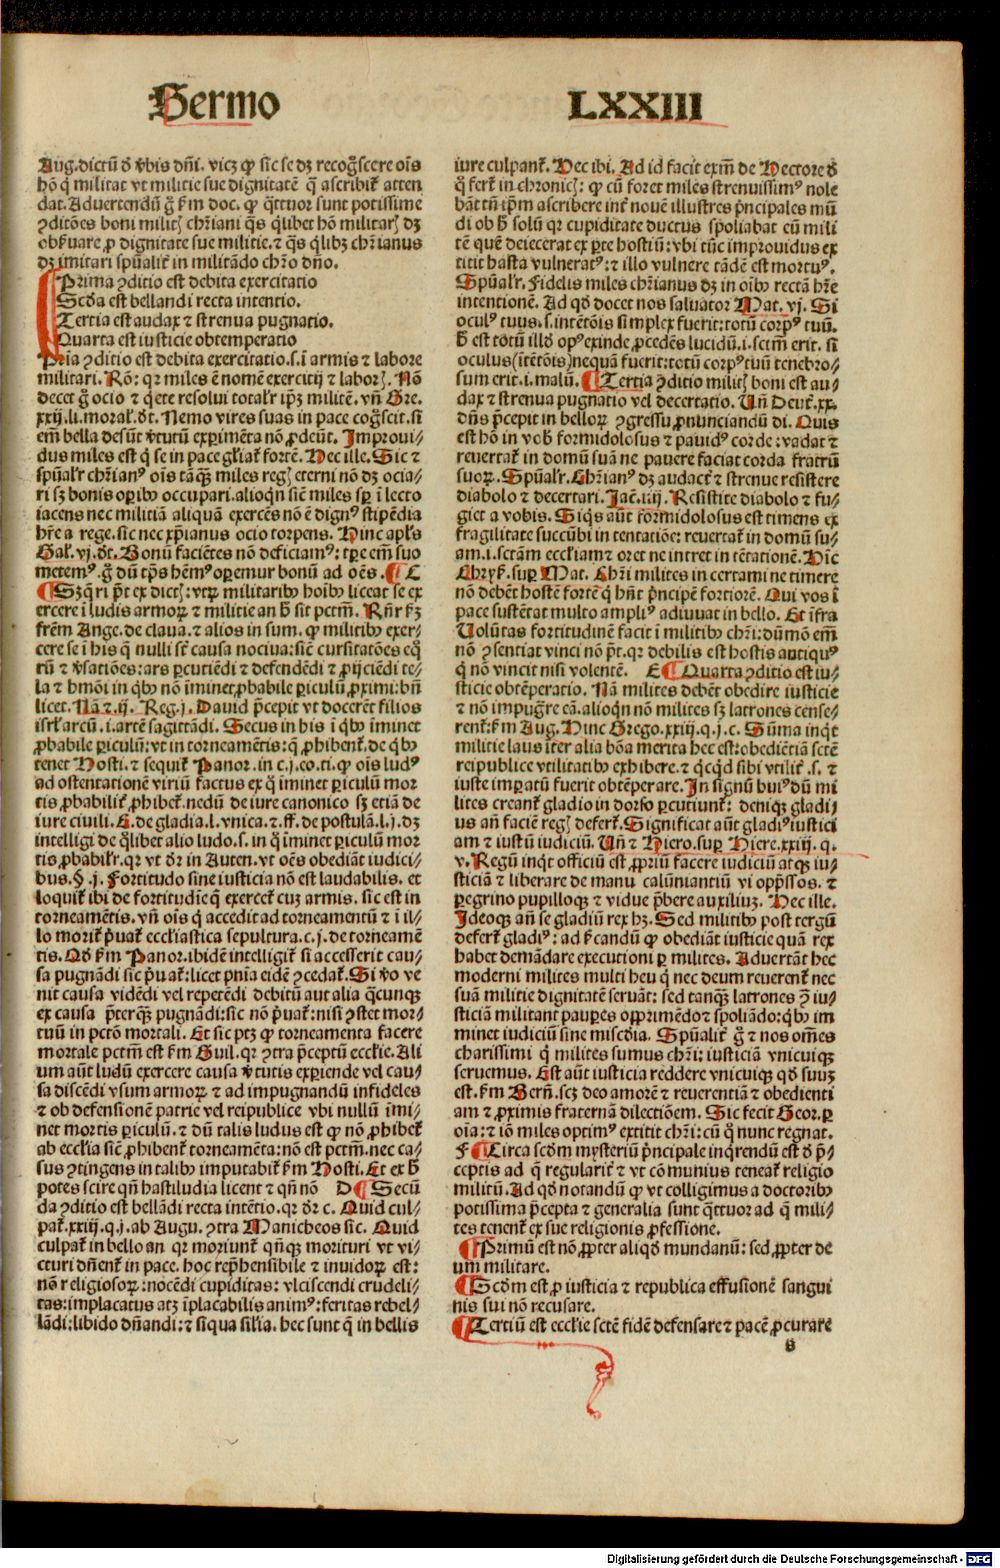 Sermo LXXIII
Aug. dictū ð v̄bis dn̄i. vicꝫ ꝙ sic̄ se dꝫ recoḡscere oīs
hō q̇ militat vt militie sue dignitatē q̄ ascribit̄ atten
dat. Aduertendū g̊ ẜm doc. ꝙ q̈ttuor sunt potissime
ꝯditōes boni milit chr̄iani q̄s q̇libet hō militar dꝫ
obẜuare ꝓ dignitate sue militie. ⁊ q̄s q̇libꝫ chr̄ianus
dꝫ imitari spūalit̄ in militādo chr̄o dn̄o.
Prima ꝯditio est debita exercitatio
Scďa est bellandi recta intentio.
Tertia est audax ⁊ strenua pugnatio.
Quarta est iusticie obtemperatio
Pria ꝯditio est debita exercitatio. s. ī armis ⁊ labore
militari. Rō: qꝛ miles ē nomē exercitij ⁊ labor. Nō
decet g̊ ocio ⁊ q̇ete resolui totalr̄ ipꝫ militē. vn̄ Gre.
xxij. li. moral̄. ďt. Nemo vires suas in pace cog̊scit. si
em̄ bella desūt v̄tutū experimēta nō ꝓdeūt. Improui⸗
dus miles est q̇ se in pace gl̄iat̄ fortē. Hec ille. Sic ⁊
spūalr̄ chr̄ian⁹ oīs tāqꝫ miles reg eterni nō dꝫ ocia⸗
ri sꝫ bonis oꝑibꝰ occupari. alioqn̄ sic̄ miles sꝑ ī lecto
iacens nec militiā aliquā exercēs nō ē dign⁹ stipēdia
hr̄e a rege. sic nec xp̄ianus ocio torpens. Hinc apl̄s
Gal̄. vj. ďt. Bonū faciētes nō deficiam⁹: tꝑe em̄ suo
metem⁹. g̊ dū tp̄s hēm⁹ oꝑemur bonū ad oēs. ¶ C
¶ Sꝫ q̇ri pt̄ ex dict: vtꝝ militaribꝰ hoībꝰ liceat se ex
ercere ī ludis armoꝝ ⁊ militie an ħ sit pctm̄. Rn̄r ẜꝫ
frēm Ange. de claua. ⁊ alios in sum. ꝙ militibꝰ exer⸗
cere se ī his q̄ nulli sr̄ causa nociua: sic̄ cursitatōes eq̊
rū ⁊ v̄satiōes: ars ꝑcutiēdi ⁊ defendēdi ⁊ ꝓijciēdi te⸗
la ⁊ hmōi in q̇bꝰ nō īminet ꝓbabile ꝑiculū ꝓximi: bn̄
licet. Nā ⁊. ij. Reg. j. Dauid p̄cepit vt docerēt filios
isrl̄ arcū. i. artē sagittādi. Secus in his ī q̇bꝰ īminet
ꝓbabile ꝑiculū: vt in torneamētis: q̄ ꝓhibent̄. de q̇bꝰ
tenet Hosti. ⁊ sequit̄ Panor. in c. j. eo. ti. ꝙ oīs lud⁹
ad ostentationē viriū factus ex q̊ īminet ꝑiculū mor
tis ꝓbabilit̄ ꝓhibet̄. nedū de iure canonico sꝫ etiā de
iure ciuili. C. de gladia. l. vnica. ⁊. ff. de postulā. l. j. dꝫ
intelligi de q̊libet alio ludo. s. in q̊ īminet ꝑiculū mor
tis ꝓbabilr̄. qꝛ vt ďr in Auten. vt oēs obediāt iudici⸗
bus. §. j. Fortitudo sine iusticia nō est laudabilis. et
loquit̄ ibi de fortitudīe q̄ exercet̄ cuꝫ armis. sic est in
torneamētis. vn̄ oīs q̇ accedit ad torneamentū ⁊ ī il⸗
lo morit̄ p̄uat̄ eccl̄iastica sepultura. c. j. de torneamē
tis. Qď ẜm Panor. ibidē intelligit̄ si accesserit cau⸗
sa pugnādi sic p̄uat̄: licet pnīa eidē ꝯcedat̄. Si v̊o ve
nit causa vidēdi vel repetēdi debitū aut alia q̄cunqꝫ
ex causa p̄terqꝫ pugnādi: sic nō p̄uat̄: nisi ꝯstet mor⸗
tuū in pctō mortali. Et sic ptꝫ ꝙ torneamenta facere
mortale pctm̄ est ẜm Guil. qꝛ ꝯtra p̄ceptū eccl̄ie. Ali
um aūt ludū exercere causa v̄tutis exꝑiende vel cau⸗
sa discēdi vsum armoꝝ ⁊ ad impugnandū infideles
⁊ ob defensionē patrie vel reipublice vbi nullū imi⸗
net mortis ꝑiculū. ⁊ dū talis ludus est ꝙ nō ꝓhibet̄
ab eccl̄ia sic̄ ꝓhibent̄ torneamēta: nō est pctm̄. nec ca⸗
sus ꝯtingens in talibꝰ imputabit̄ ẜm Hosti. Et ex ħ
potes scire qn̄ hastiludia licent ⁊ qn̄ nō D¶ Secū
da ꝯditio est bellādi recta intētio. qꝛ ďr c. Quid cul⸗
pat̄. xxiij. q. j. ab Augu. ꝯtra Manicheos sic. Quid
culpat̄ in bello an qꝛ moriunt̄ qn̄qꝫ morituri vt vi⸗
cturi dn̄ent̄ in pace. hoc rep̄hensibile ⁊ inuidoꝝ est:
nō religiosoꝝ: nocēdi cupiditas: vlciscendi crudeli⸗
tas: implacatus atꝫ īplacabilis anim⁹: feritas rebel⸗
lādi: libido dn̄andi: ⁊ siqua sil̄ia. hec sunt q̄ in bellis
iure culpant̄. Hec ibi. Ad id facit exm̄ de Hectore ð
q̊ fert̄ in chronic: ꝙ cū foret miles strenuissim⁹ nole
bāt tn̄ ip̄m ascribere int̄ nouē illustres p̄ncipales mū
di ob ħ solū qꝛ cupiditate ductus spoliabat eū mili
tē quē deiecerat ex ꝑte hostiū: vbi tūc improuidus ex
titit hasta vulnerat⁹: ⁊ illo vulnere tādē est mortu⁹.
Spūalr̄. Fidelis miles chr̄ianus dꝫ in oībꝰ rectā hr̄e
intentionē. Ad qď docet nos saluator Mat. vj. Si
ocul⁹ tuus. s. intētōis simplex fuerit: totū corp⁹ tuū.
ħ est totū illď op⁹ exinde ꝓcedēs lucidū. i. sctm̄ erit. si
oculus (itētōis) nequā fuerit: totū corp⁹ tuū tenebro⸗
sum erit. i. malū. ¶ Tertia ꝯditio milit boni est au⸗
dax ⁊ strenua pugnatio vel decertatio. Vn̄ Deut̄. xx.
dn̄s p̄cepit in belloꝝ ꝯgressu ꝓnunciandū di. Quis
est hō in vob formidolosus ⁊ pauid⁹ corde: vadat ⁊
reuertat̄ in domū suā ne pauere faciat corda fratrū
suoꝝ. Spūalr̄. Chr̄ian⁹ dꝫ audact̄ ⁊ strenue resistere
diabolo ⁊ decertari. Jac̄. iiij. Resistite diabolo ⁊ fu⸗
giet a vobis. Siq̇s aūt formidolosus est timens ex
fragilitate succūbi in tentatiōe: reuertat̄ in domū su⸗
am. i. sctām eccl̄iam ⁊ oret ne intret in tētationē. Hic̄
Chryẜ. suꝑ Mat. Chr̄i milites in certami ne timere
nō debēt hostē fortē q̇ hn̄t p̄ncipē fortiorē. Qui vos ī
pace sustētat multo ampli⁹ adiuuat in bello. Et ifra
Volūtas fortitudinē facit ī militibꝰ chr̄i: dūmō em̄
nō ꝯsentiat vinci nō pt̄. qꝛ debilis est hostis antiqu⁹
q̇ nō vincit nisi volentē. E¶ Quarta ꝯditio est iu⸗
sticie obtēꝑatio. Nā milites debēt obedire iusticie
⁊ nō impug̊re eā. alioqn̄ nō milites sꝫ latrones cense⸗
rent̄: ẜm Aug. Hinc Grego. xxiij. q. j. c. Sūma inq̇t
militie laus iter alia bōa merita hec est: obediētiā sctē
reipublice vtilitatibꝰ exhibere. ⁊ q̇cq̇d sibi vtilit̄. s. ⁊
iuste imꝑatū fuerit obtēꝑare. In signū hui⁹ dū mi
lites creant̄ gladio in dorso ꝑcutiunt̄: deniqꝫ gladi⸗
us an̄ faciē reg defert̄. Significat aūt gladi⁹ iustici
am ⁊ iustū iudiciū. Vn̄ ⁊ Hiero. suꝑ Hiere. xxiij. q.
v. Regū inq̇t officiū est ꝓpriū facere iudiciū atqꝫ iu⸗
sticiā ⁊ liberare de manu calūniantiū vi opp̄ssos. ⁊
ꝑegrino pupilloqꝫ ⁊ vidue p̄bere auxiliuꝫ. Hec ille.
Ideoqꝫ an̄ se gladiū rex hꝫ. Sed militibꝰ post tergū
defert̄ gladi⁹: ad ẜcandū ꝙ obediāt iusticie quā rex
habet demādare executioni ꝑ milites. Aduertāt hec
moderni milites multi heu q̇ nec deum reuerent̄ nec
suā militie dignitatē seruāt: sed tanqꝫ latrones ꝯ iu⸗
sticiā militant pauꝑes opprimēdo ⁊ spoliādo: q̇bꝰ im
minet iudiciū sine miscďia. Spūalit̄ g̊ ⁊ nos om̄es
charissimi q̇ milites sumus chr̄i: iusticiā vnicuiqꝫ
seruemus. Est aūt iusticia reddere vnicuiqꝫ qď suuꝫ
est. ẜm Bern̄. scꝫ deo amorē ⁊ reuerentiā ⁊ obedienti
am ⁊ ꝓximis fraternā dilectiōem. Sic fecit Geor. ꝑ
oīa: ⁊ iō miles optim⁹ extitit chr̄i: cū q̊ nunc regnat.
F ¶ Circa scďm mysteriū p̄ncipale inq̇rendū est ð p̄⸗
ceptis ad q̄ regularit̄ ⁊ vt cōmunius teneat̄ religio
militū. Ad qď notandū ꝙ vt colligimus a doctoribꝰ
potissima p̄cepta ⁊ generalia sunt q̈ttuor ad q̄ mili⸗
tes tenent̄ ex sue religionis ꝓfessione.
¶ Primū est nō ꝓpter aliqď mundanū: sed ꝓpter de
um militare.
¶ Scďm est ꝓ iusticia ⁊ republica effusionē sangui
nis sui nō recusare.
¶ Tertiū est eccl̄ie sctē fidē defensare ⁊ pacē ꝓcurare
s
Digitalisierung gefördert durch die Deutsche Forschungsgemeinschaft - DFG